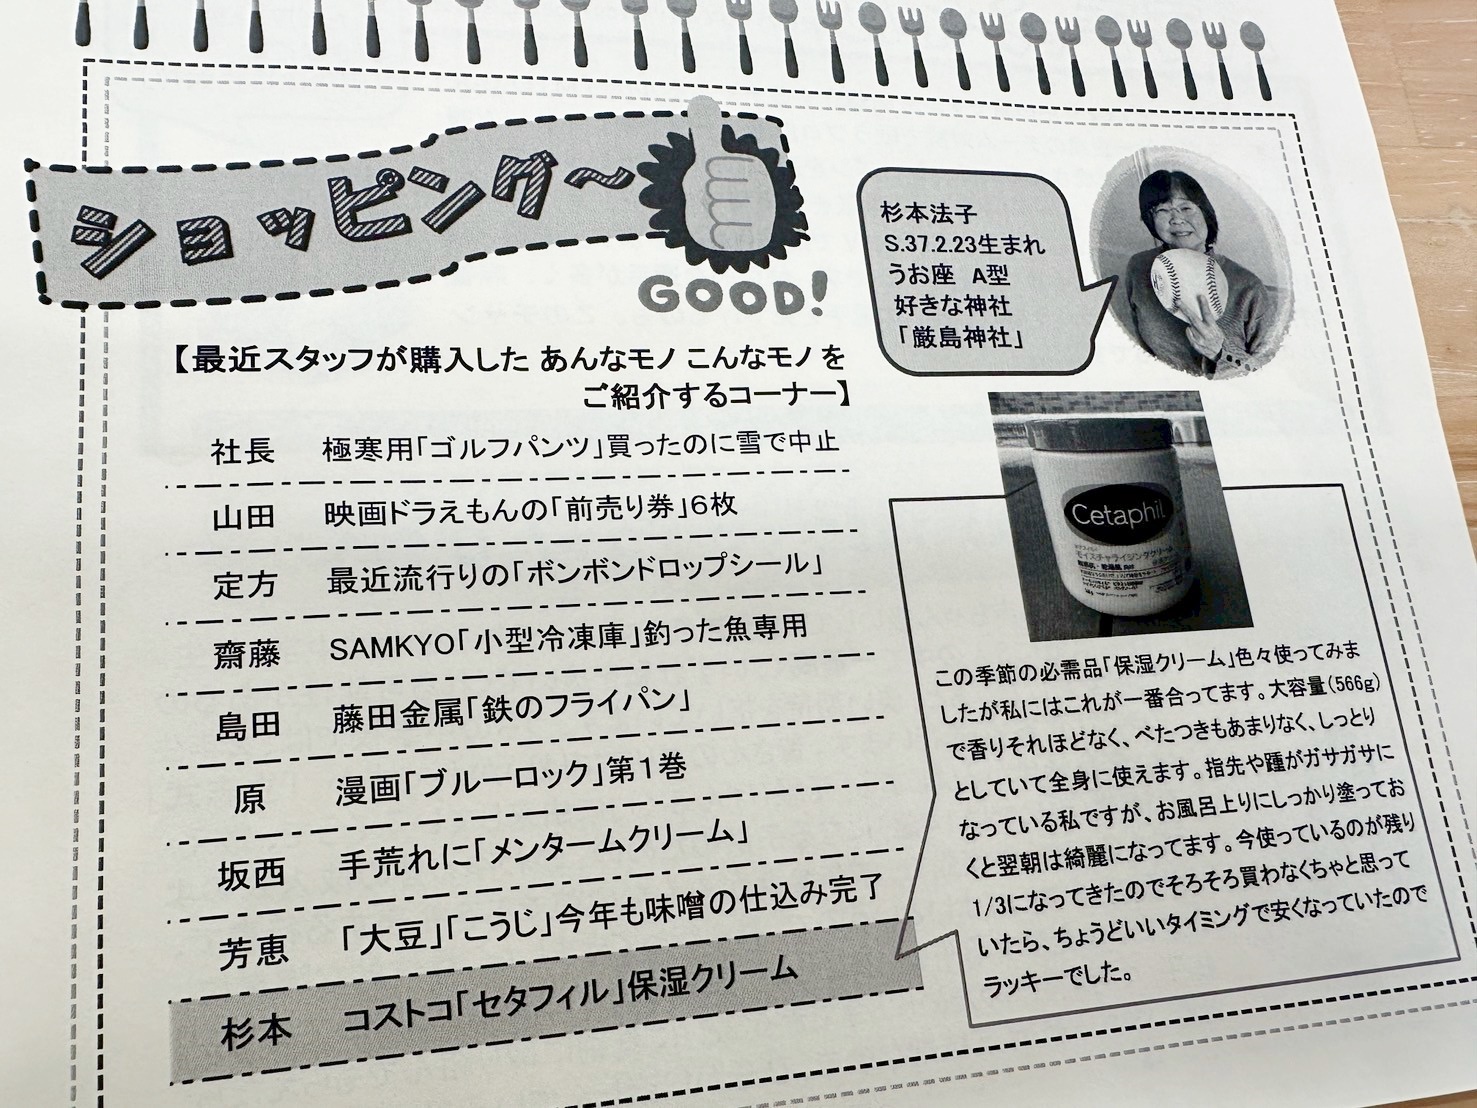 ショッピング～
GOOD!
【最近スタッフが購入した あんなモノ こんなモノ を
ご紹介するコーナー】
社長 極寒用「ゴルフパンツ」買ったのに雪で中止
山田 映画ドラえもんの「前売り券」6枚
定方 最近流行りの「ボンボンドロップシール」
齋藤 SAMKYO「小型冷凍庫」釣った魚専用
島田 藤田金属「鉄のフライパン」
原 漫画「ブルーロック」第1巻
坂西 手荒れに「メンタームクリーム」
芳恵 「大豆」「こうじ」今年も味噌の仕込み完了
杉本 コストコ「セタフィル」保湿クリーム
杉本法子
S.37.2.23生まれ
うお座 A型
好きな神社
「厳島神社」
Cetaphil
モイスチャライジングクリーム
この季節の必需品「保湿クリーム」色々使ってみま
したが私にはこれが一番合ってます。大容量(566g)
で香りそれほどなく、べたつきもあまりなく、しっとり
としていて全身に使えます。指先や踵がガサガサに
なっている私ですが、お風呂上りにしっかり塗ってお
くと翌朝は綺麗になってます。今使っているのが残り
1/3になってきたのでそろそろ買わなくちゃと思って
いたら、ちょうどいいタイミングで安くなっていたので
ラッキーでした。